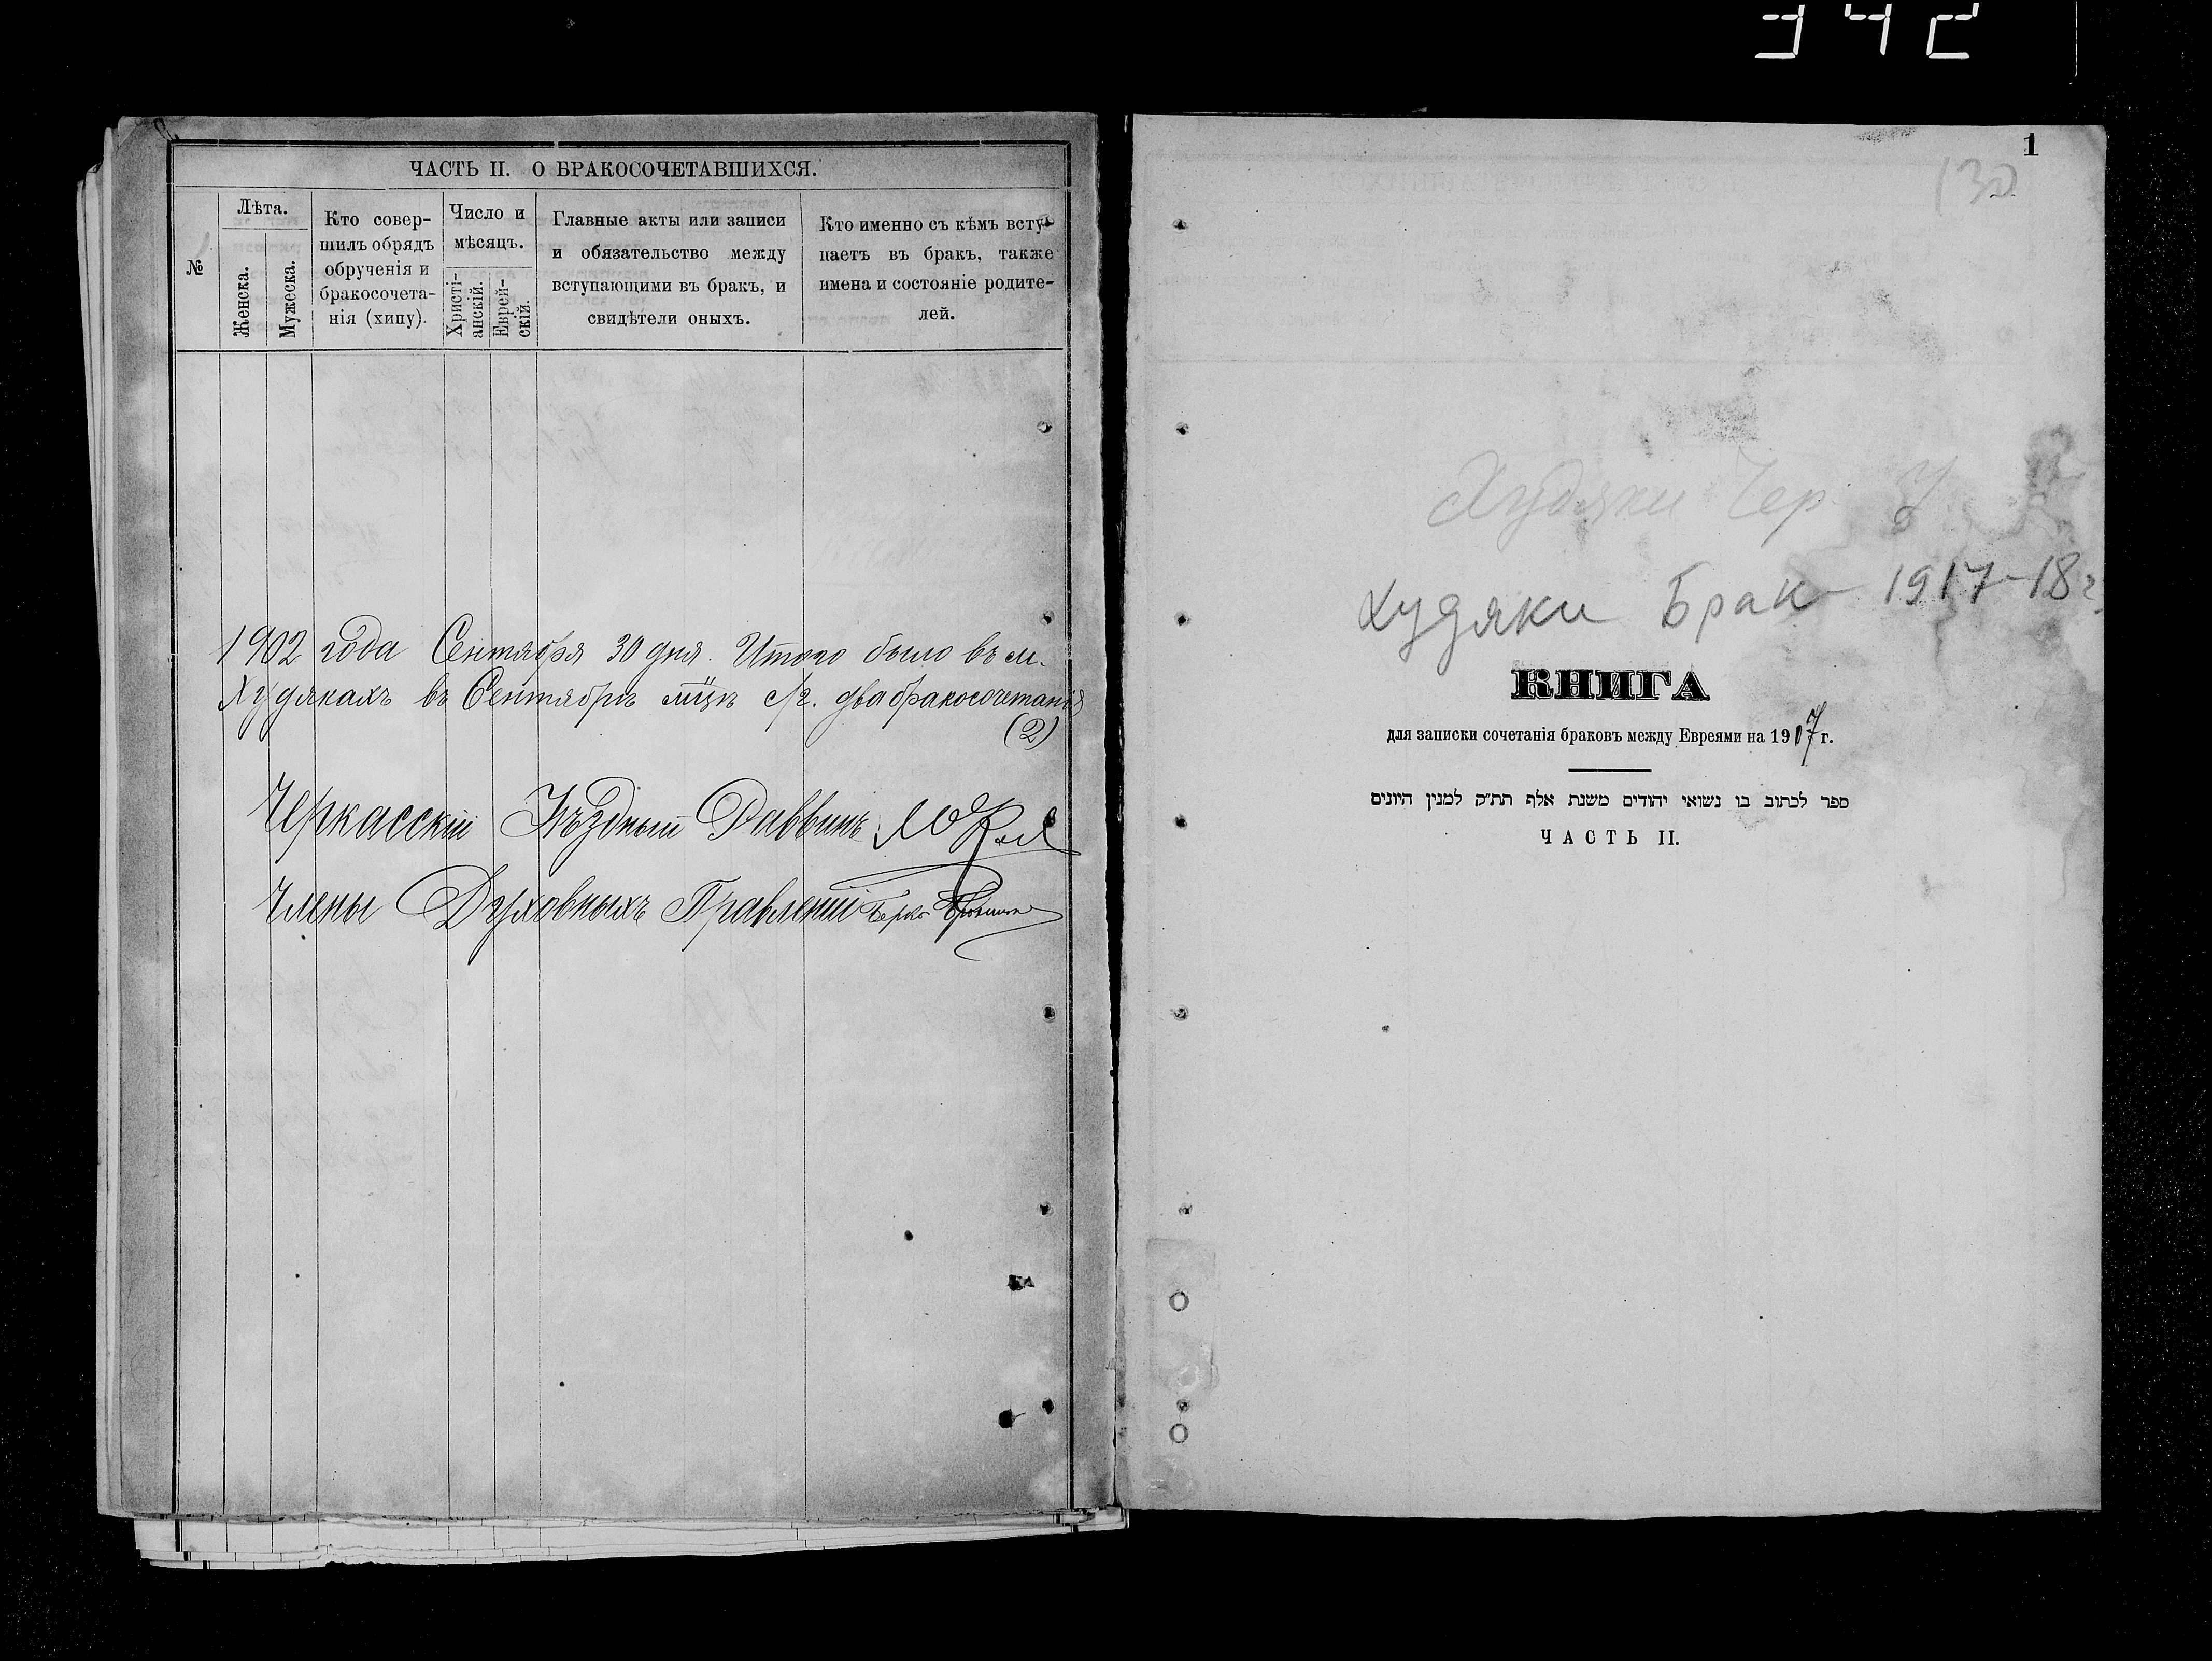 342
ЧАСТЬ II. О БРАКОСОЧЕТАВШИХСЯ.
№
Лѣта.
Женска.
Мужеска.
Кто совер-
шилъ обрядъ
обрученія и
бракосочета-
нія (хипу).
Число и
мѣсяцъ.
Христі-
анскій.
Еврей-
скій.
Главные акты или записи
и обязательство между
вступающими въ бракъ, и
свидѣтели оныхъ.
Кто именно съ кѣмъ всту-
паетъ въ бракъ, также
имена и состояніе родите-
лей.
1902 года Сентября 30 дня. Итого было въ м.
Худякахъ въ Сентябрѣ мцѣ с/г. два бракосочетанія
(2)
Черкасскій Уѣздный Раввинъ
Члены Духовныхъ Правленій Берко
1
130
Худяки Чер. У
Худяки Брак 1917-18 г.
КНИГА
для записки сочетанія браковъ между Евреями на 1907 г.
ספר לכתוב בו נשואי יהודים משנת אלף תת״ק למנין היונים
ЧАСТЬ II.